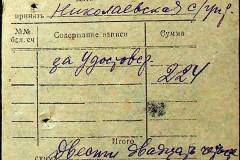 принять Николаевская с/упр.
№№ бал. сч Содержание записи Сумма
за удостовер. 224
Итого
Двести двадцать четыре